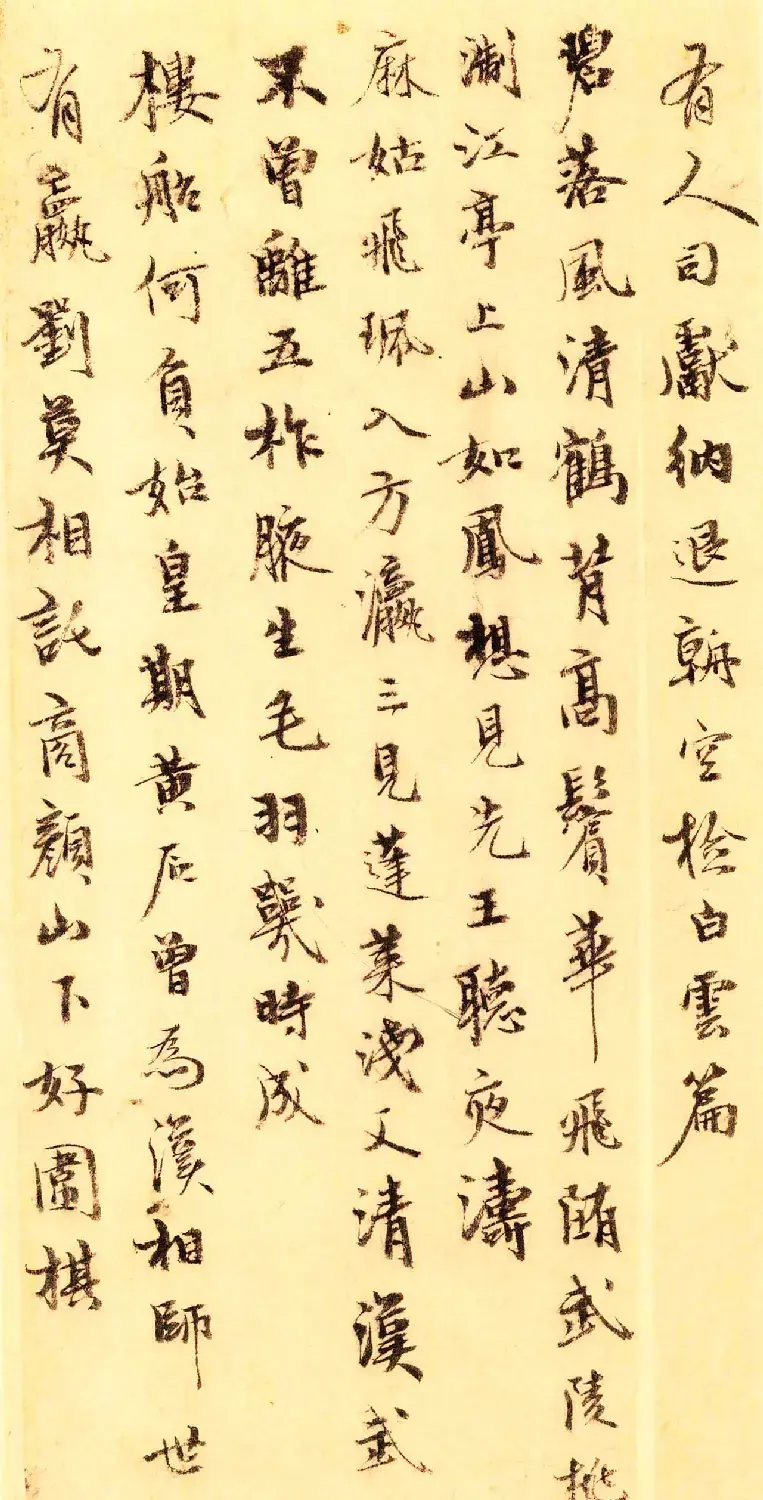 有人司獻納退朝空檢白雲篇
碧落風清鶴背高鬢華飛隨武陵桃
淛江亭上山如鳳想見先王聽夜濤
麻姑飛珮入方瀛三見蓬萊淺又清漢武
不曾離五柞腋生毛羽幾時成
樓船何負始皇期黃石曾為漢相師世
有嬴劉莫相託商顏山下好圍棋